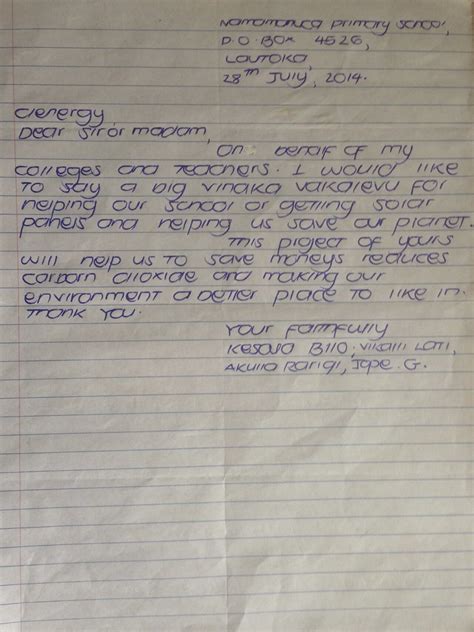 primary school,
P.O. BOX 4526,
LAUTOKA,
28th July, 2014.
Clenergy,
Dear Sir or madam,
On behalf of my
colleges and teachers. I would like
to say a big vinaka vakalevu for
helping our school or getting solar
panels and helping us save our planet.
This project of yours
will help us to save moneys reduces
carbom dioxide and making our
environment a better place to like in.
Thank you.
Your faithfully